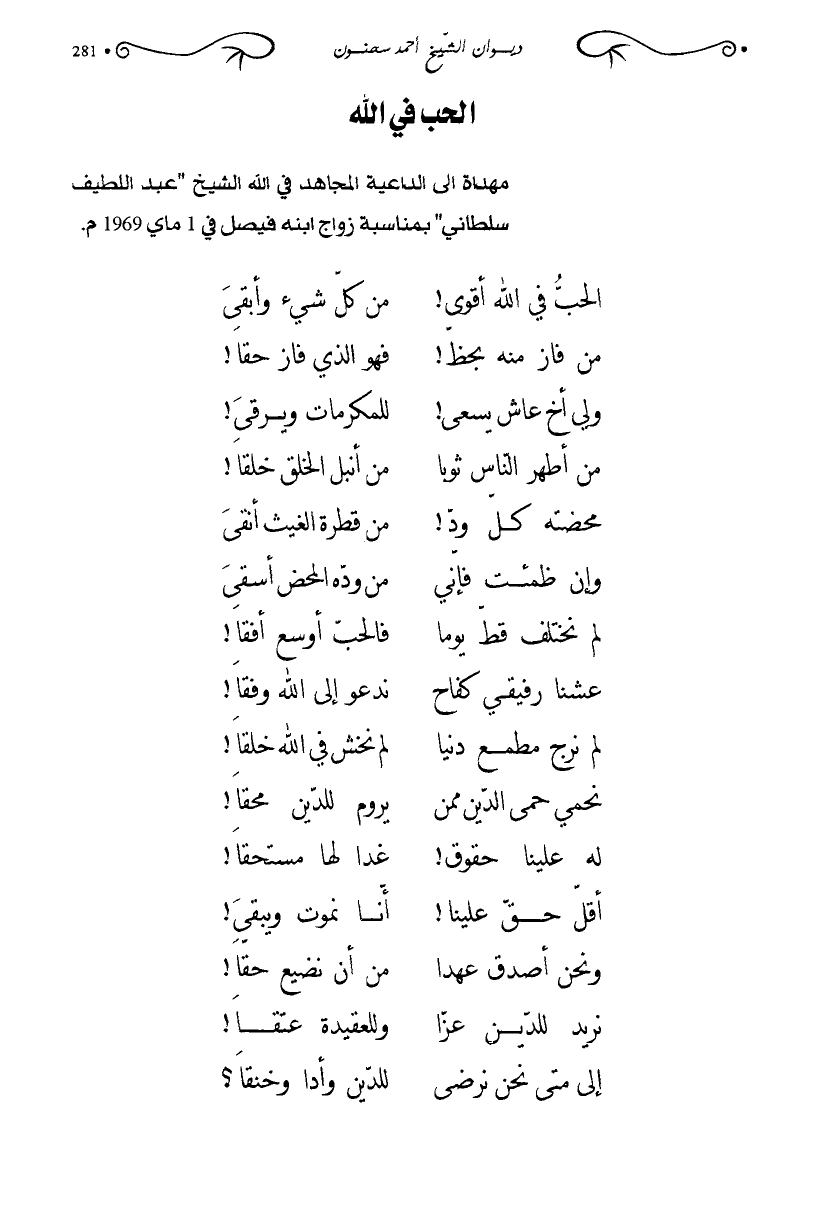 ديــوان الشّيخ أحمد سحنــون 281
الحب في الله
مهداة الى الداعية المجاهد في الله الشيخ "عبد اللطيف
سلطاني" بمناسبة زواج ابنه فيصل في 1 ماي 1969 م.
الحبُّ في الله أقوى! من كلّ شيء وأبقىَ
من فاز منه بحظّ! فهو الذي فاز حقَا!
ولي أخ عاش يسعى! للمكرمات ويــرقىَ!
من أطهر النّاس ثوبا من أنبل الخلق خلقَا!
محضته كــلّ ودّ! من قطرة الغيث أنقىَ
وإن ظمئــت فإنّي من ودّه المحض أسقىَ
لم نختلف قطّ يوما فالحبّ أوسع أفقَا!
عشنا رفيقــي كفاح ندعو إلى الله وفقَا!
لم نرج مطمــع دنيا لم نخش في الله خلقَا!
نحمي حمى الدّين ممن يروم للدّين محقَا!
له علينا حقوق! غدا لها مستحقَا!
أقلّ حـــقّ علينا! أنّــا نموت ويبقىَ!
ونحن أصدق عهدا من أن نضيع حقَّا!
نريد للدّيــن عزّا وللعقيدة عتقــَا!
إلى متى نحن نرضى للدّين وأدا وخنقَا؟